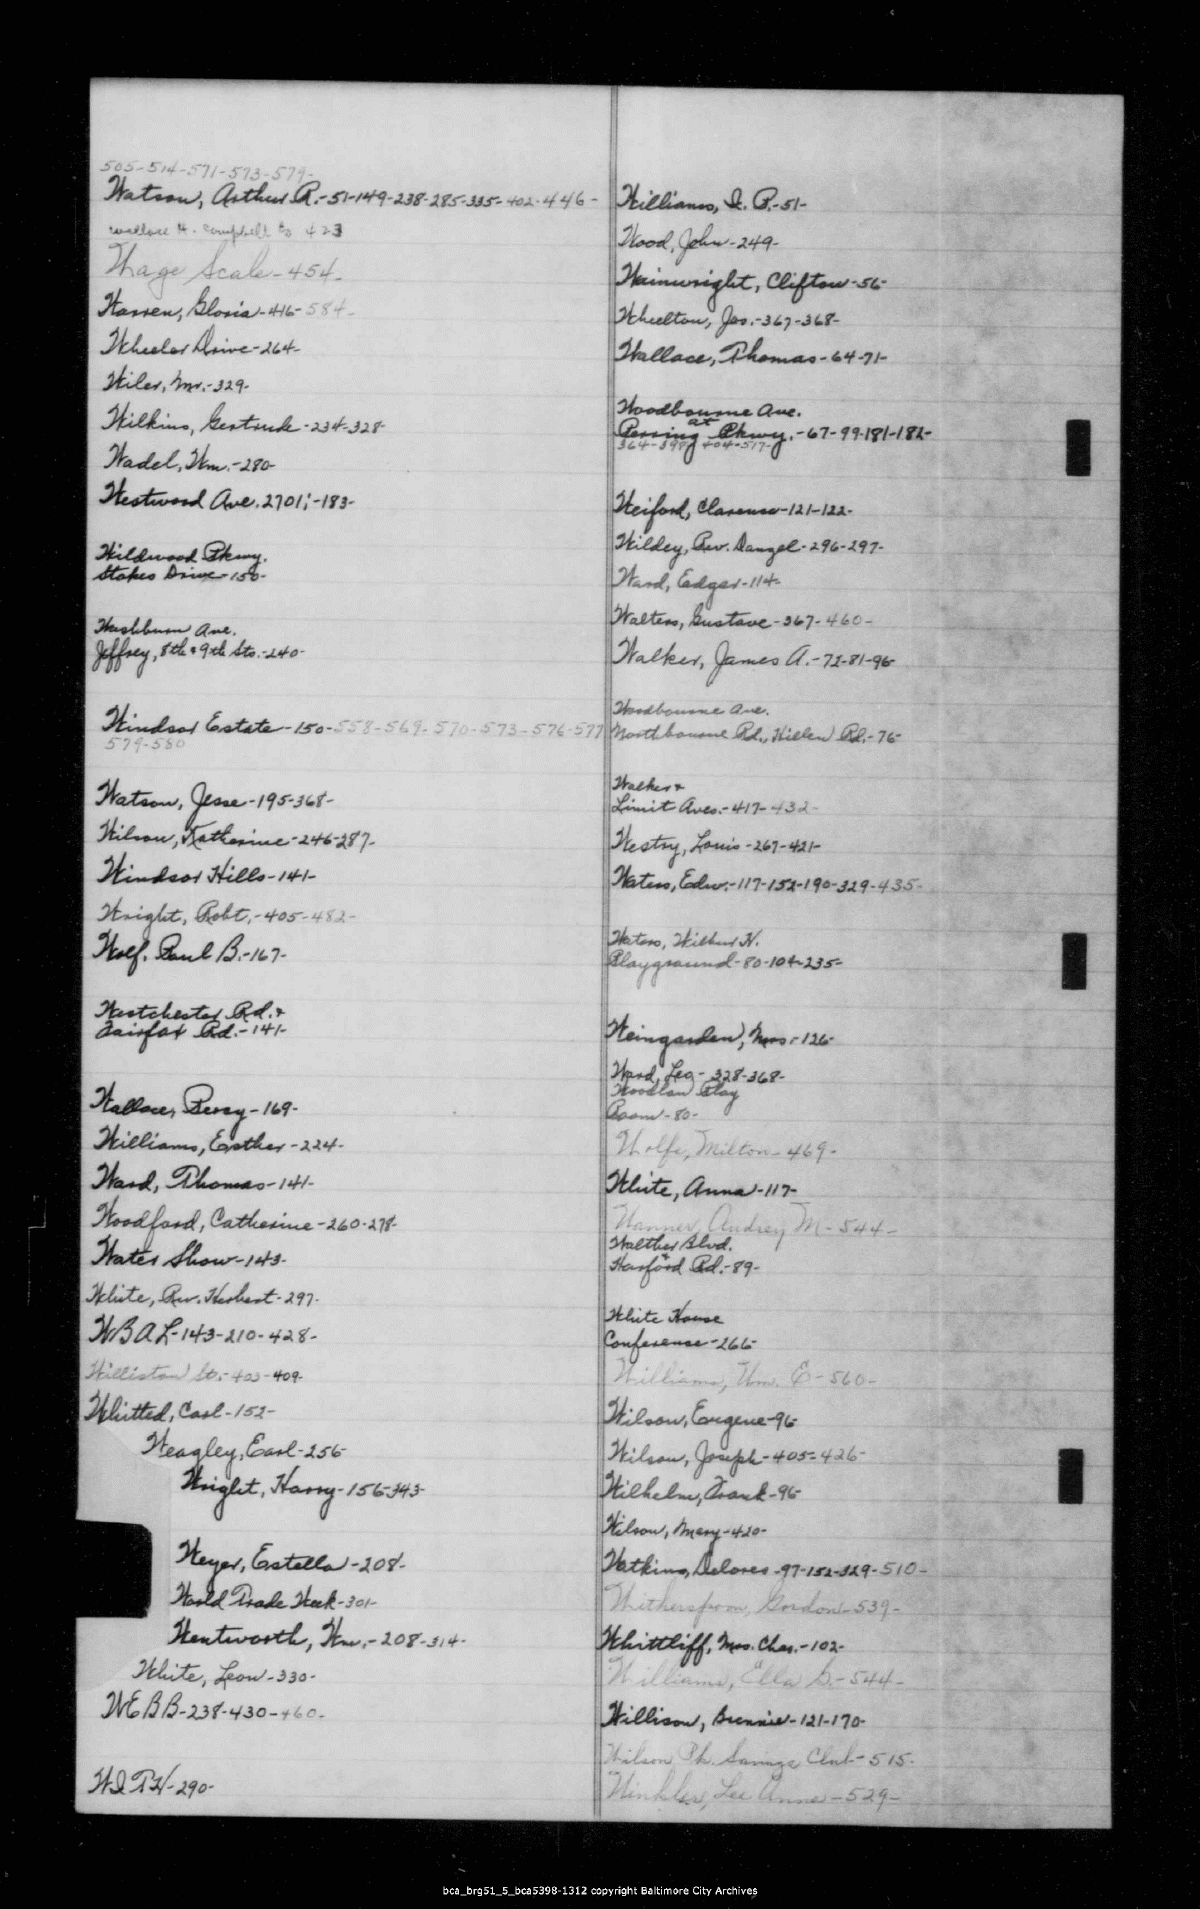 505-514-571-573-579-
Watson, Arthur R.-51-149-238-285-335-402-446-
Wallace H. Campbell Co 423
Wage Scale-454-
Warren, Gloria-416-584-
Wheeler Drive-264-
Wiler, Mr.-329-
Wilkins, Gertrude-234-328-
Wadel, Wm.-280-
Westwood Ave. 2701;-183-
Wildwood Pkwy.
Stokes Drive-150-
Washburn Ave.
Jeffrey, 8th & 9th Sts.-240-
Windsor Estate-150-558-569-570-573-576-577
579-580
Watson, Jesse-195-368-
Wilson, Katherine-246-287-
Windsor Hills-141-
Wright, Robt.-405-482-
Wolf, Paul B.-167-
Westchester Rd. &
Fairfax Rd.-141-
Wallace, Percy-169-
Williams, Esther-224-
Ward, Thomas-141-
Woodford, Catherine-260-278-
Water Show-143-
White, Rev. Herbert-297-
WBAL-143-210-428-
Williston St.-403-409-
Whitted, Carl-152-
Weagley, Earl-256-
Wright, Harry-156-343-
Weyer, Estella-208-
World Trade Week-301-
Wentworth, Wm.-208-314-
White, Leon-330-
WEBB-238-430-460-
WITH-290-
Williams, I. P.-51-
Wood, John-249-
Wainwright, Clifton-56-
Wheelton, Jas.-367-368-
Wallace, Thomas-64-71-
Woodbourne Ave.
at
Perring Pkwy.-67-99-181-182-
364-398-404-517-
Weiford, Clarence-121-122-
Wildey, Rev. Danzel-296-297-
Ward, Edgar-114-
Walters, Gustave-367-460-
Walker, James A.-72-81-96-
Woodbourne Ave.
Northbourne Rd., Hillen Rd.-76-
Walker &
Limit Aves.-417-432-
Westry, Louis-267-421-
Waters, Edw.-117-152-190-329-435-
Waters, Wilbur H.
Playground-80-104-235-
Weingarden, Mrs.-126-
Ward, Leo-328-368-
Woodlan Play
Room-80-
Wolfe, Milton-469-
White, Anna-117-
Wanner, Audrey M-544-
Walther Blvd.
&
Harford Rd.-89-
White House
Conference-266-
Williams, Wm. E-560-
Wilson, Eugene-96-
Wilson, Joseph-405-426-
Wilhelm, Frank-96-
Wilson, Mary-420-
Watkins, Delores-97-152-329-510-
Witherspoon, Gordon-539-
Whittliff, Mrs. Chas.-102-
Williams, Ella S.-544-
Willison, Brennie-121-170-
Wilson Pk. Savings Club-515-
Winkler, Lee Anne-529-
bca_brg51_5_bca5398-1312 copyright Baltimore City Archives